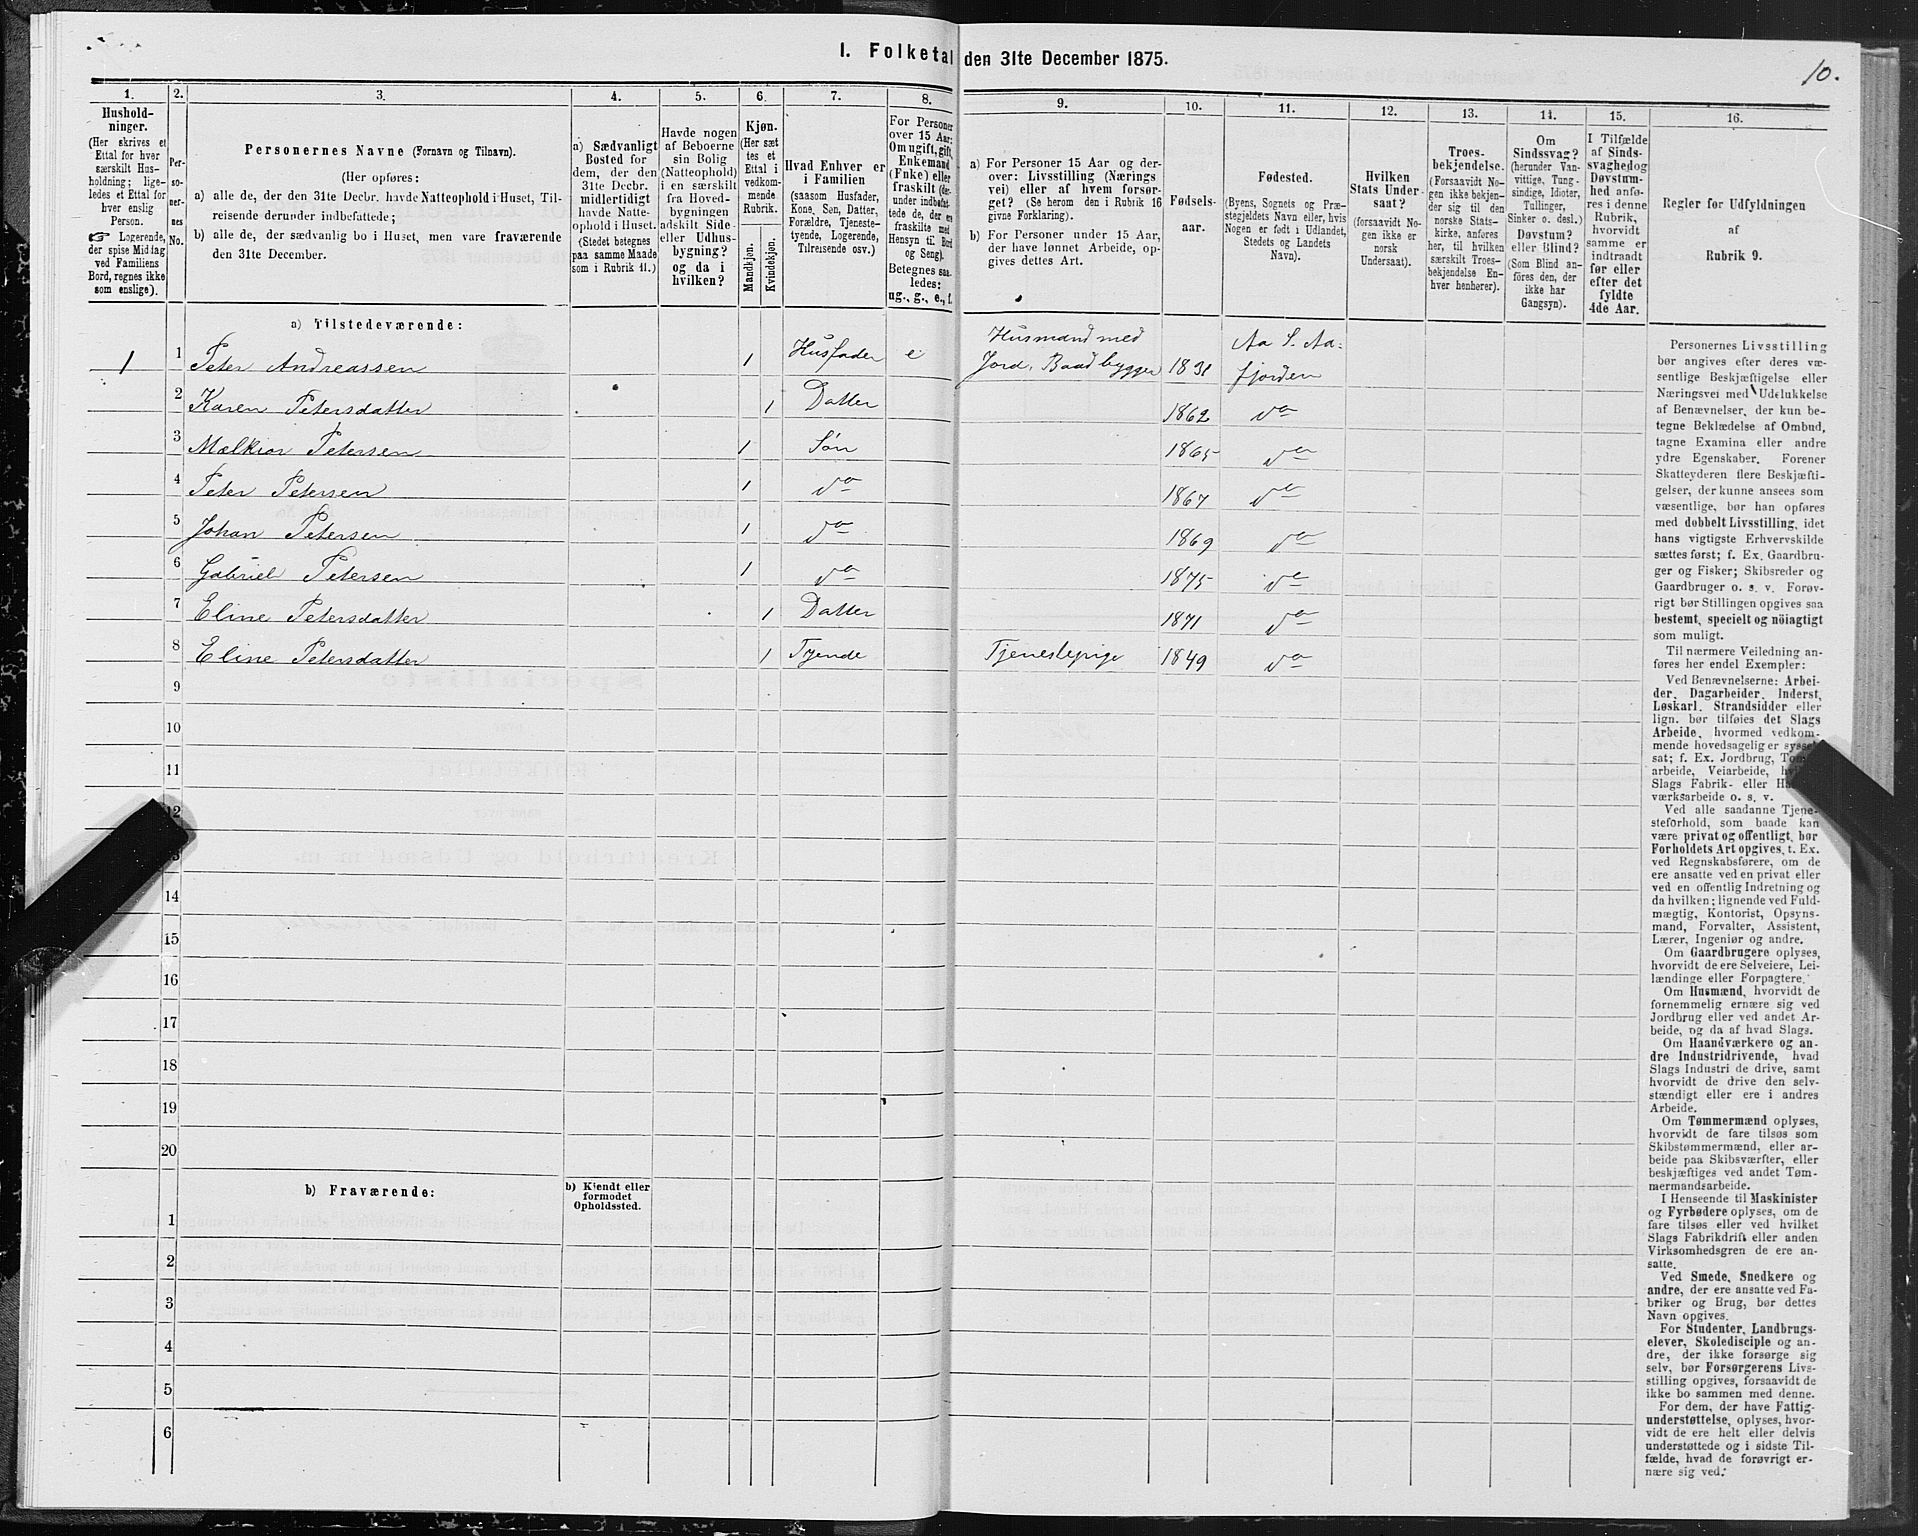 I. Folketal den 31te December 1875.
10.
1.
Hushold-
ninger.
(Her skrives et
Ettal for hver
særskilt Hus-
holdning; lige-
ledes et Ettal for
hver enslig
Person.
☞ Logerende,
der spise Middag
ved Familiens
Bord, regnes ikke
som enslige).
2.
Per-
so-
ner-
nes
No.
3.
Personernes Navne (Fornavn og Tilnavn).
(Her opføres:
a) alle de, der den 31te Decbr. havde Natteophold i Huset, Til-
reisende derunder indbefattede;
b) alle de, der sædvanlig bo i Huset, men vare fraværende
den 31te December.
4.
a) Sædvanligt
Bosted for
dem, der den
31te Decbr.
midlertidigt
havde Natte-
ophold i Huset.
(Stedet betegnes
paa samme Maade
som i Rubrik 11.)
5.
Havde nogen
af Beboerne
sin Bolig
(Natteophold)
i en særskilt
fra Hoved-
bygningen
adskilt Side-
eller Udhus-
bygning?
og da i
hvilken?
6.
Kjøn.
(Her sæt
tes et
Ettal i
vedkom-
mende
Rubrik.
Mandkjøn.
Kvindekjøn.
7.
Hvad Enhver er
i Familien
(saasom Husfader,
Kone, Søn, Datter,
Forældre, Tjeneste-
tyende, Logerende,
Tilreisende osv.)
8.
For Personer
over 15 Aar:
Om ugift, gift,
Enkemand
(Enke) eller
fraskilt (her-
under indbefat-
tede de, der ere
fraskilte med
Hensyn til Bord
og Seng).
Betegnes saa-
ledes:
ug., g., e., f.
9.
a) For Personer 15 Aar og der-
over: Livsstilling (Nærings
vei) eller af hvem forsør-
get? (Se herom den i Rubrik 16
givne Forklaring).
b) For Personer under 15 Aar,
der have lønnet Arbeide, op-
gives dettes Art.
10.
Fødsels-
aar.
11.
Fødested.
(Byens, Sognets og Præ-
stegjeldets Navn eller, hvis
Nogen er født i Udlandet,
Stedets og Landets
Navn).
12.
Hvilken
Stats Under-
saat?
(forsaavidt No-
gen ikke er
norsk
Undersaat).
13.
Troes-
bekjendelse.
(Forsaavidt No-
gen ikke bekjen-
der sig til den
norske Stats-
kirke, anføres
her, til hvilken
særskilt Troes-
bekjendelse En-
hver henhører).
14.
Om
Sindssvag?
(herunder Van-
vittige, Tung-
sindige, Idioter,
Tullinger,
Sinker o. desl.)
Døvstum?
eller Blind?
(Som Blind an-
føres den, der
ikke har
Gangsyn).
15.
I Tilfælde
af Sinds-
svaghed og
Døvstum-
hed anfø-
res i denne
Rubrik,
hvorvidt
samme er
indtraadt
før eller
efter det
fyldte
4de Aar.
16.
Regler for Udfyldningen
af
Rubrik 9.
a) Tilstedeværende:
1 1 Peter Andreassen 1 Husfader e Husmand med
Jord, Baadbygger 1831 Aa S. Aa-
fjorden
2 Karen Petersdatter 1 Datter 1862 do
3 Mælkior Petersen 1 Søn 1865 do
4 Peter Petersen 1 do 1867 do
5 Johan Petersen 1 do 1869 do
6 Gabriel Petersen 1 do 1875 do
7 Eline Petersdatter 1 Datter 1871 do
8 Eline Petersdatter 1 Tyende Tjenestepige 1849 do
9
10
11
12
14
15
16
17
18
19
20
b) Fraværende:
b) Kjendt eller
formodet
Opholdssted.
1
2
3
4
5
6
Personernes Livsstilling
bør angives efter deres væ-
sentlige Beskjæftigelse eller
Næringsvei med Udelukkelse
af Benævnelser, der kun be-
tegne Beklædelse af Ombud,
tagne Examina eller andre
ydre Egenskaber. Forener
Skatteyderen flere Beskjæfti-
gelser, der kunne ansees som
væsentlige, bør han opføres
med dobbelt Livsstilling, idet
hans vigtigste Erhvervskilde
sættes først; f. Ex. Gaardbru-
ger og Fisker; Skibsreder og
Gaardbruger o. s. v. Forøv-
rigt bør Stillingen opgives saa
bestemt, specielt og nöiagtigt
som muligt.
Til nærmere Veiledning an-
føres her endel Exempler:
Ved Benævnelserne: Arbei-
der, Dagarbeider, Inderst,
Løskarl, Strandsidder eller
lign. bør tilføies det Slags
Arbeide, hvormed vedkom-
mende hovedsagelig er syssel-
sat; f. Ex. Jordbrug,
arbeide, Veiarbeide,
Slags Fabrik- eller
værksarbeide o. s. v.
Ved alle saadanne Tjene-
steforhold, som baade kan
være privat og offentligt, bør
Forholdets Art opgives, t. Ex.
ved Regnskabsførere, om de
ere ansatte ved en privat eller
ved en offentlig Indretning og
da hvilken; lignende ved Fuld-
mægtig, Kontorist, Opsyns-
mand, Forvalter, Assistent,
Lærer, Ingeniør og andre.
Om Gaardbrugere oplyses,
hvorvidt de ere Selveiere, Lei-
lændinge eller Forpagtere.
Om Husmænd, hvorvidt de
fornemmelig ernære sig ved
Jordbrug eller ved andet Ar-
beide, og da af hvad Slags.
Om Haandværkere og an-
dre Industridrivende, hvad
Slags Industri de drive, samt
hvorvidt de drive den selv-
stændigt eller ere i andres
Arbeide.
Om Tømmermænd oplyses,
hvorvidt de fare tilsøs som
Skibstømmermænd, eller ar-
beide paa Skibsværfter, eller
beskjæftiges ved andet Tøm-
mermandsarbeide.
I Henseende til Maskinister
og Fyrbødere oplyses, om de
fare tilsøs eller ved hvilket
Slags Fabrikdrift eller anden
Virksomhedsgren de ere an-
satte.
Ved Smede, Snedkere og
andre, der ere ansatte ved Fa-
briker og Brug, bør dettes
Navn opgives.
For Studenter, Landbrugs-
elever, Skoledisciple og an-
dre, der ikke forsørge sig
selv, bør Forsørgerens Livs-
stilling opgives, forsaavidt de
ikke bo sammen med denne.
For dem, der have Fattig-
understøttelse, oplyses, hvor-
vidt de ere helt eller delvis
understøttede og i sidste Til-
fælde, hvad de forøvrigt er-
nære sig ved.